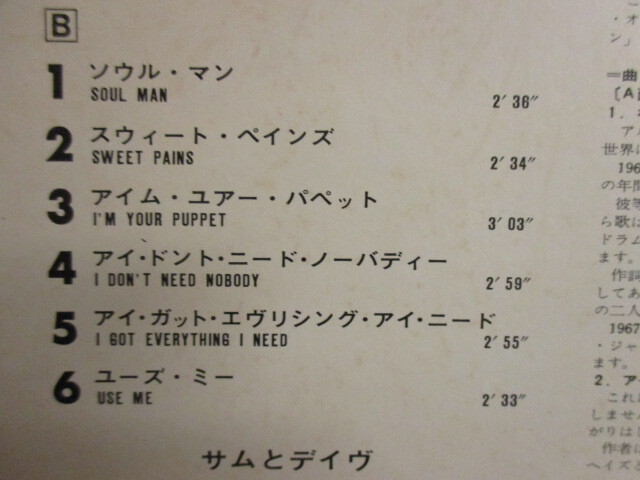 B
1 ソウル・マン
SOUL MAN 2′ 36″
2 スウィート・ペインズ
SWEET PAINS 2′ 34″
3 アイム・ユアー・パペット
I'M YOUR PUPPET 3′ 03″
4 アイ・ドント・ニード・ノーバディー
I DON'T NEED NOBODY 2′ 59″
5 アイ・ガット・エヴリシング・アイ・ニード
I GOT EVERYTHING I NEED 2′ 55″
6 ユーズ・ミー
USE ME 2′ 33″
サムとデイヴ
・オ
ン」
＝曲
〔A
1．
ア
世界に
196
の年間
彼等
ら歌は
ドラム
ます。
作詞
してあ
の二人
1967
・ジャ
ます。
2．ア
これ
しません
がりは
作者
ヘイズと